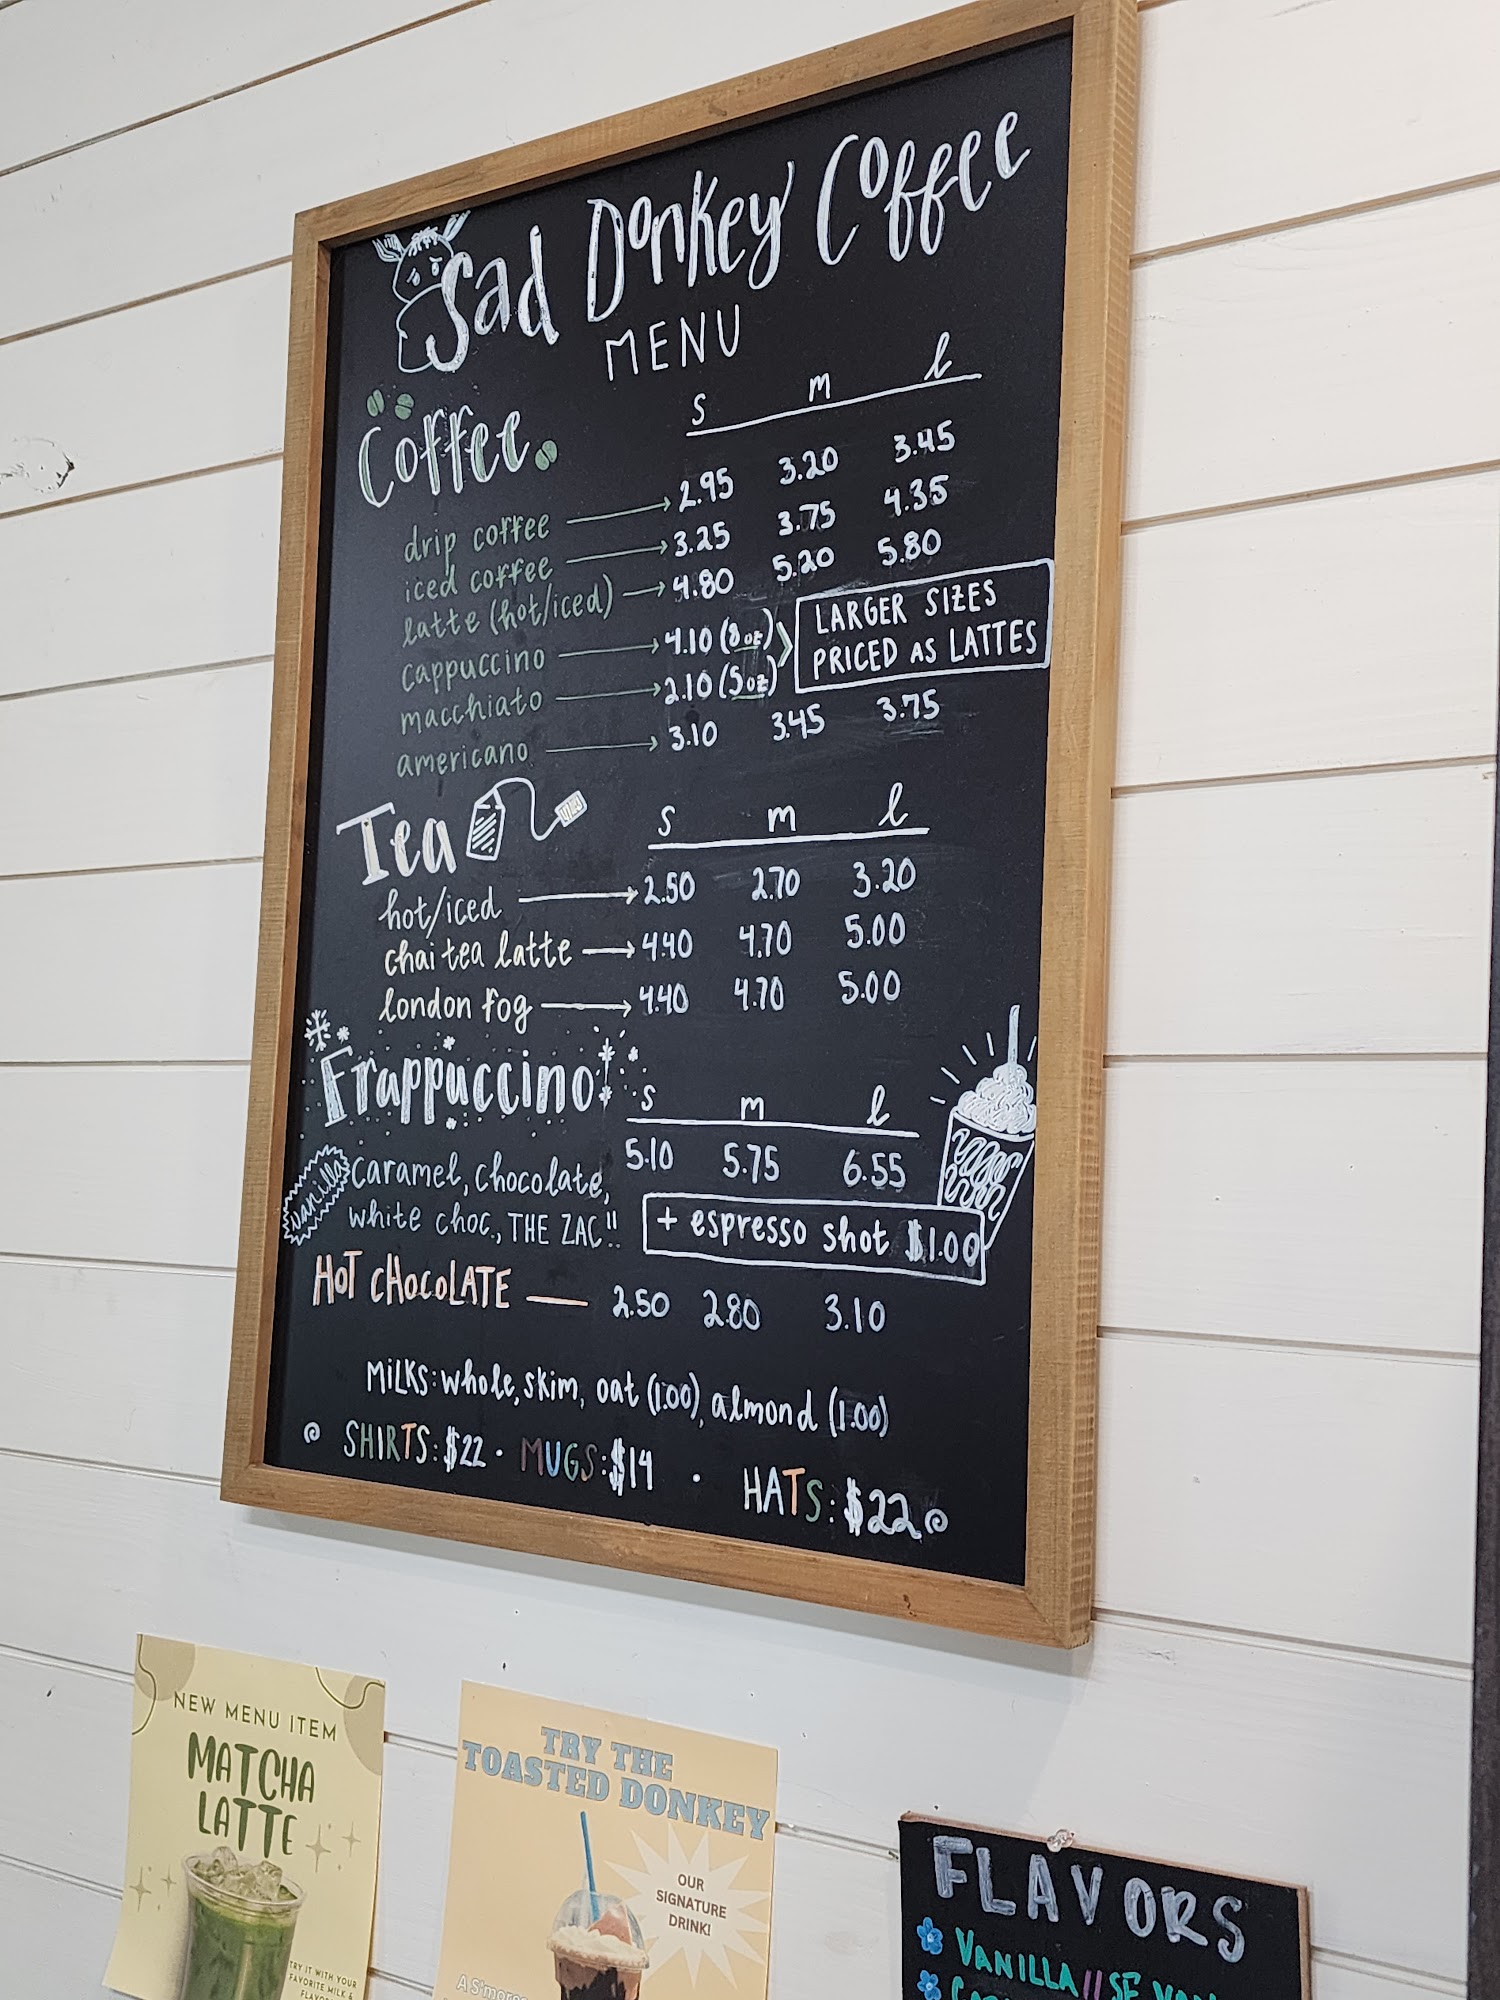 Sad Donkey Coffee
MENU
Coffee
s m l
drip coffee 2.95 3.20 3.45
iced coffee 3.25 3.75 4.35
latte (hot/iced) 4.80 5.20 5.80
cappuccino 4.10 (8oz)
macchiato 2.10 (5oz)
LARGER SIZES
PRICED AS LATTES
americano 3.10 3.45 3.75
Tea
s m l
hot/iced 2.50 2.70 3.20
chai tea latte 4.40 4.70 5.00
london fog 4.40 4.70 5.00
Frappuccino!
s m l
5.10 5.75 6.55
vanilla caramel, chocolate,
white choc., THE ZAC!!
+ espresso shot $1.00
HOT CHOCOLATE — 2.50 2.80 3.10
MILKS: whole, skim, oat (1.00), almond (1.00)
SHIRTS: $22 · MUGS: $14 · HATS: $22
NEW MENU ITEM
MATCHA
LATTE
TRY IT WITH YOUR
FAVORITE MILK &
TRY THE
TOASTED DONKEY
OUR
SIGNATURE
DRINK!
A S'mores
FLAVORS
VANILLA // SF